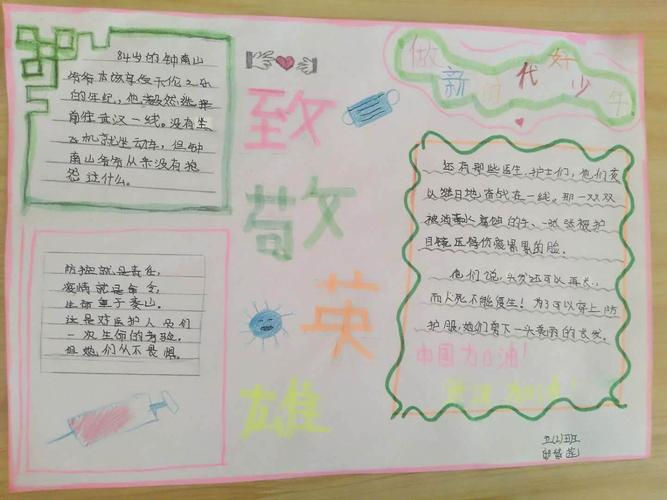 84岁的钟南山
爷爷本该享受天伦之乐
的年纪,他毅然选择
前往武汉一线。没有坐
飞机就坐动车,但钟
南山爷爷从来没有抱
怨过什么。
防控就是责任,
疫情就是命令,
生命重于泰山。
这是对医护人员们
一次生命的考验,
但她们从不畏惧。
致
敬
英
雄
做新时代好少年
还有那些医生、护士们,他们夜
以继日地奋战在一线。那一双双
被消毒水腐蚀的手、一张张被护
目镜压得伤痕累累的脸。
他们说,头发还可以再长,
而人死不能复生!为了可以穿上防
护服,她们剪下一头秀丽的长发。
中国加油!
武汉加油!
五(2)班